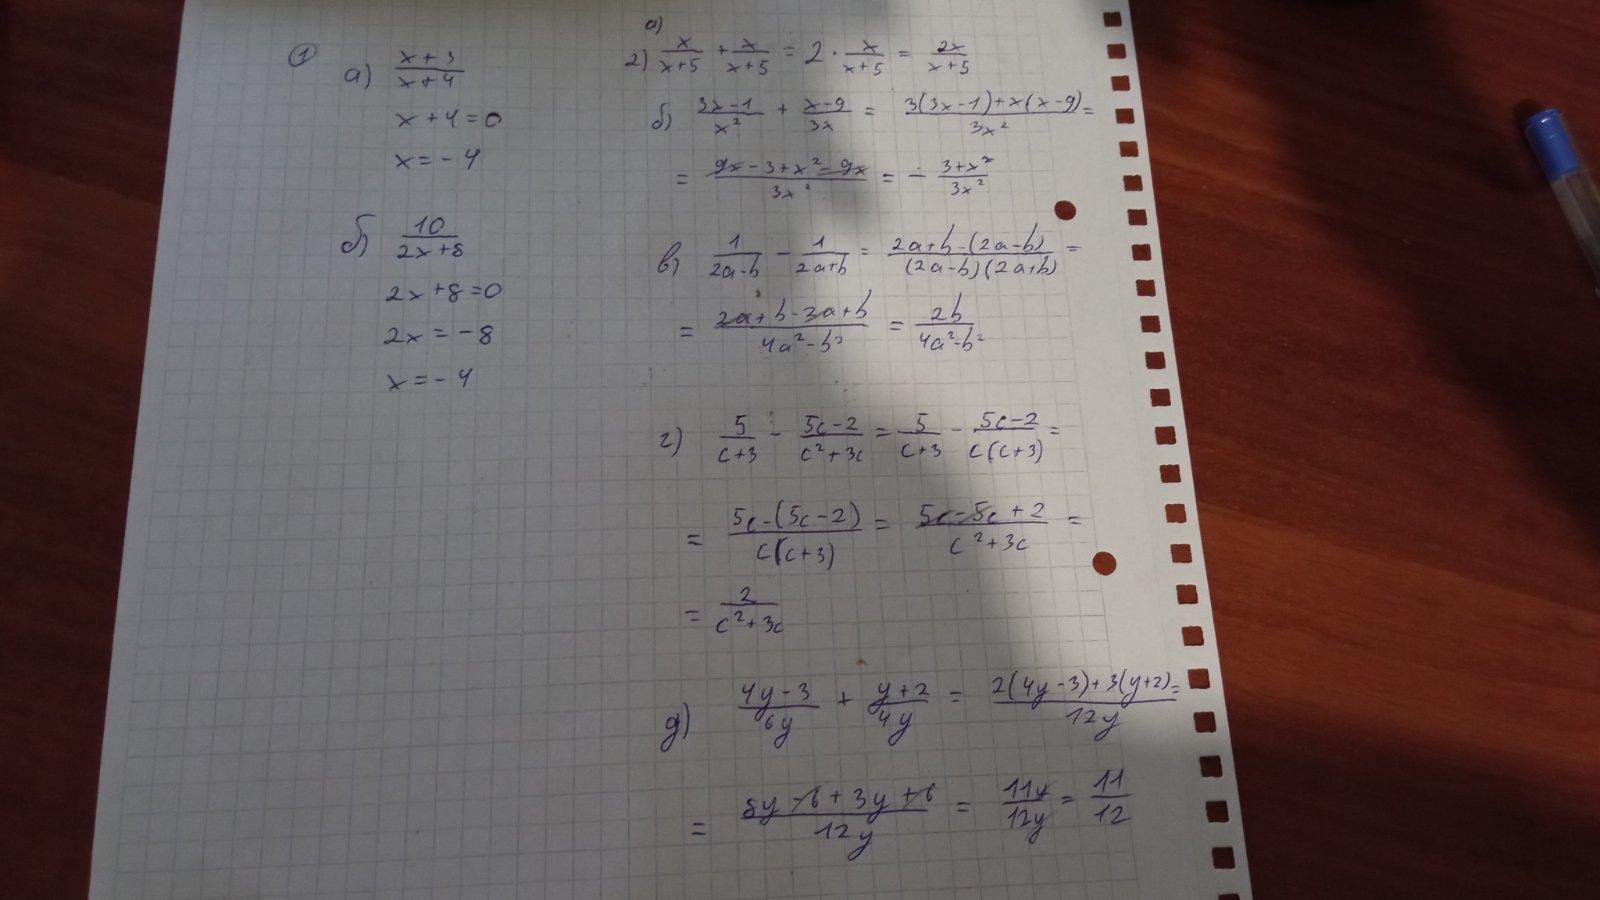 1
а) x+3/x+4
x+4=0
x=-4
б) 10/2x+8
2x+8=0
2x=-8
x=-4
а)
2) x/x+5 + x/x+5 = 2 · x/x+5 = 2x/x+5
б) 3x-1/x² + x-9/3x = 3(3x-1)+x(x-9)/3x² =
= 9x-3+x²-9x/3x² = - 3+x²/3x²
в) 1/2a-b - 1/2a+b = 2a+b-(2a-b)/(2a-b)(2a+b) =
= 2a+b-2a+b/4a²-b² = 2b/4a²-b²
г) 5/c+3 - 5c-2/c²+3c = 5/c+3 - 5c-2/c(c+3) =
= 5c-(5c-2)/c(c+3) = 5c-5c+2/c²+3c =
= 2/c²+3c
д) 4y-3/6y + y+2/4y = 2(4y-3)+3(y+2)/12y =
= 8y-6+3y+6/12y = 11y/12y = 11/12